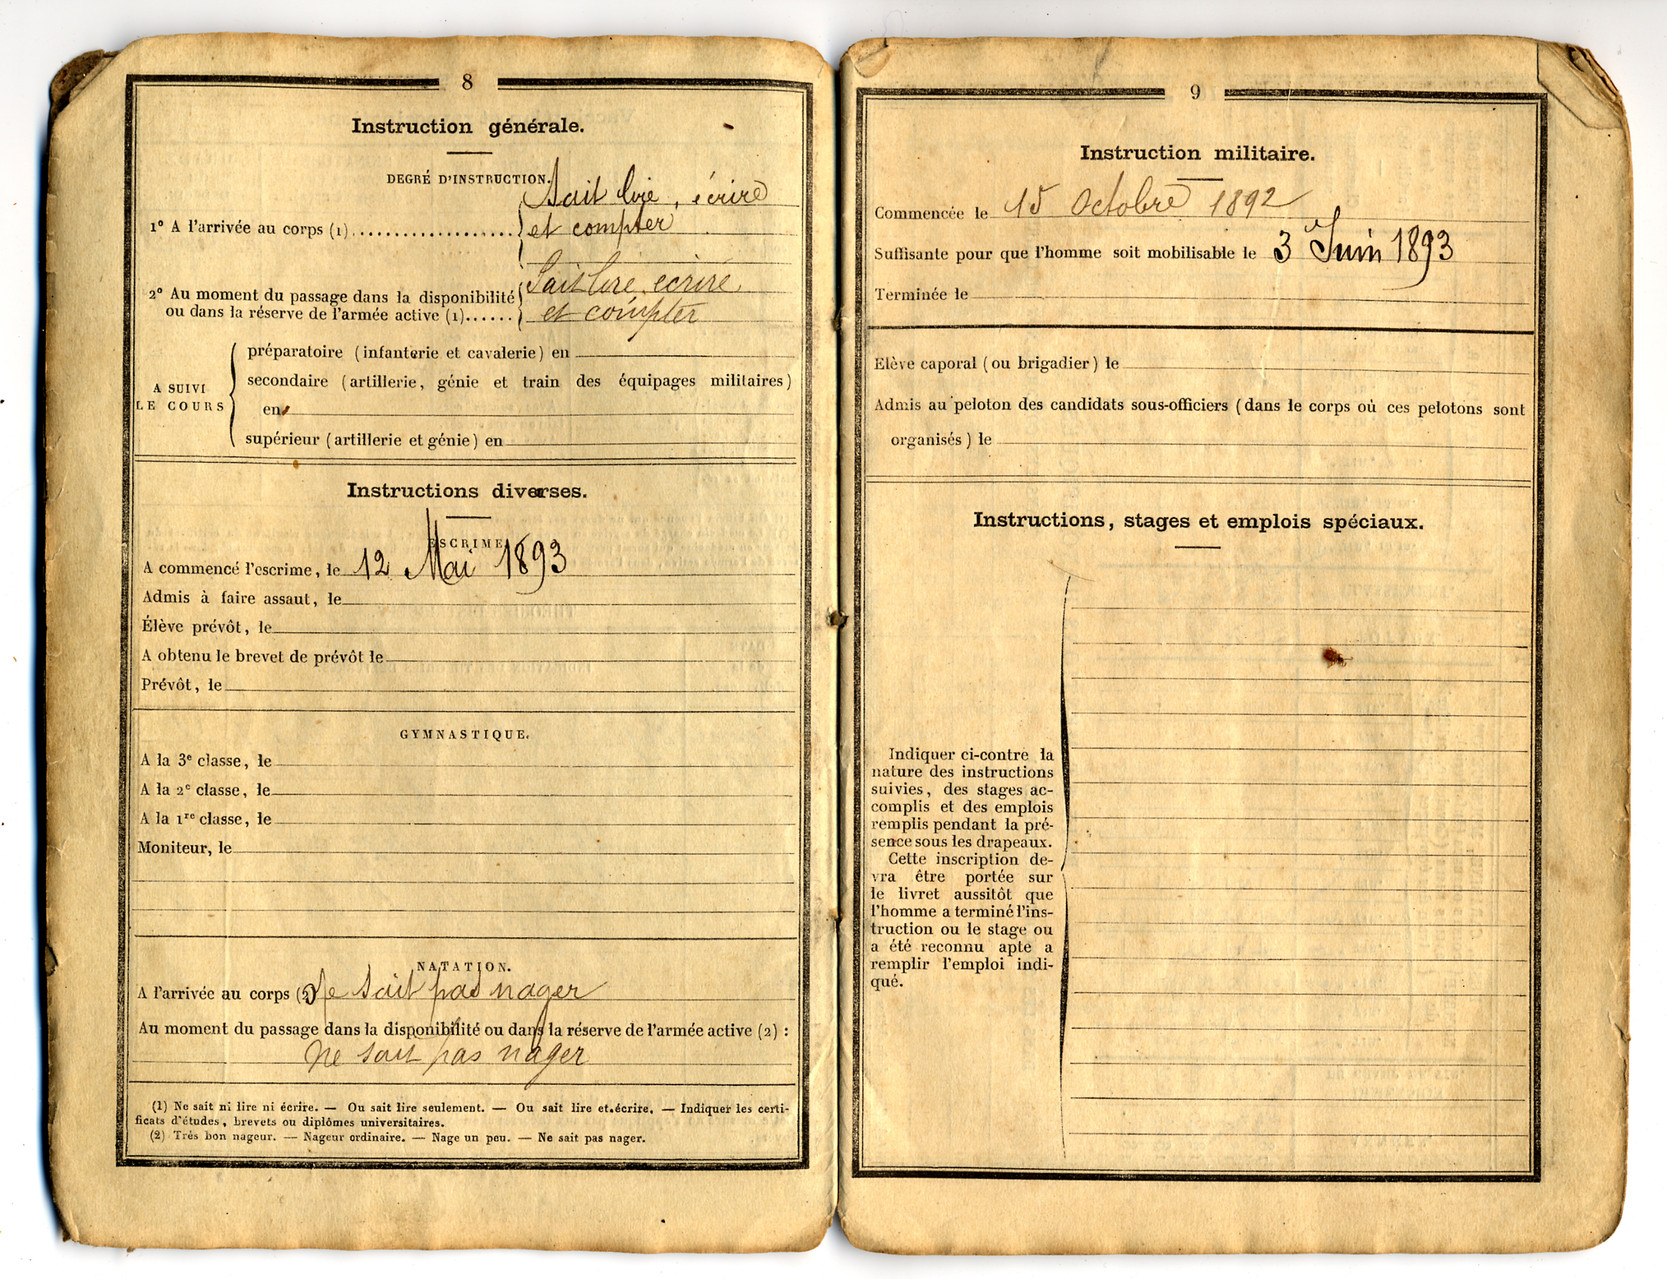 8
Instruction générale.
DEGRÉ D'INSTRUCTION.
1° A l'arrivée au corps (1).................. Sait lire, écrire
et compter
2° Au moment du passage dans la disponibilité
ou dans la réserve de l'armée active (1)...... Sait lire, ecrire
et compter
A SUIVI
LE COURS
préparatoire (infanterie et cavalerie) en
secondaire (artillerie, génie et train des équipages militaires)
en
supérieur (artillerie et génie) en
Instructions diverses.
ESCRIME
A commencé l'escrime, le 12 Mai 1893
Admis à faire assaut, le
Élève prévôt, le
A obtenu le brevet de prévôt le
Prévôt, le
GYMNASTIQUE.
A la 3e classe, le
A la 2e classe, le
A la 1re classe, le
Moniteur, le
NATATION.
A l'arrivée au corps (2) Ne sait pas nager
Au moment du passage dans la disponibilité ou dans la réserve de l'armée active (2) :
Ne sait pas nager
(1) Ne sait ni lire ni écrire. — Ou sait lire seulement. — Ou sait lire et écrire. — Indiquer les certi-
ficats d'études, brevets ou diplômes universitaires.
(2) Très bon nageur. — Nageur ordinaire. — Nage un peu. — Ne sait pas nager.
9
Instruction militaire.
Commencée le 15 Octobre 1892
Suffisante pour que l'homme soit mobilisable le 3 Juin 1893
Terminée le
Elève caporal (ou brigadier) le
Admis au peloton des candidats sous-officiers (dans le corps où ces pelotons sont
organisés) le
Instructions, stages et emplois spéciaux.
Indiquer ci-contre la
nature des instructions
suivies, des stages ac-
complis et des emplois
remplis pendant la pré-
sence sous les drapeaux.
Cette inscription de-
vra être portée sur
le livret aussitôt que
l'homme a terminé l'ins-
truction ou le stage ou
a été reconnu apte a
remplir l'emploi indi-
qué.